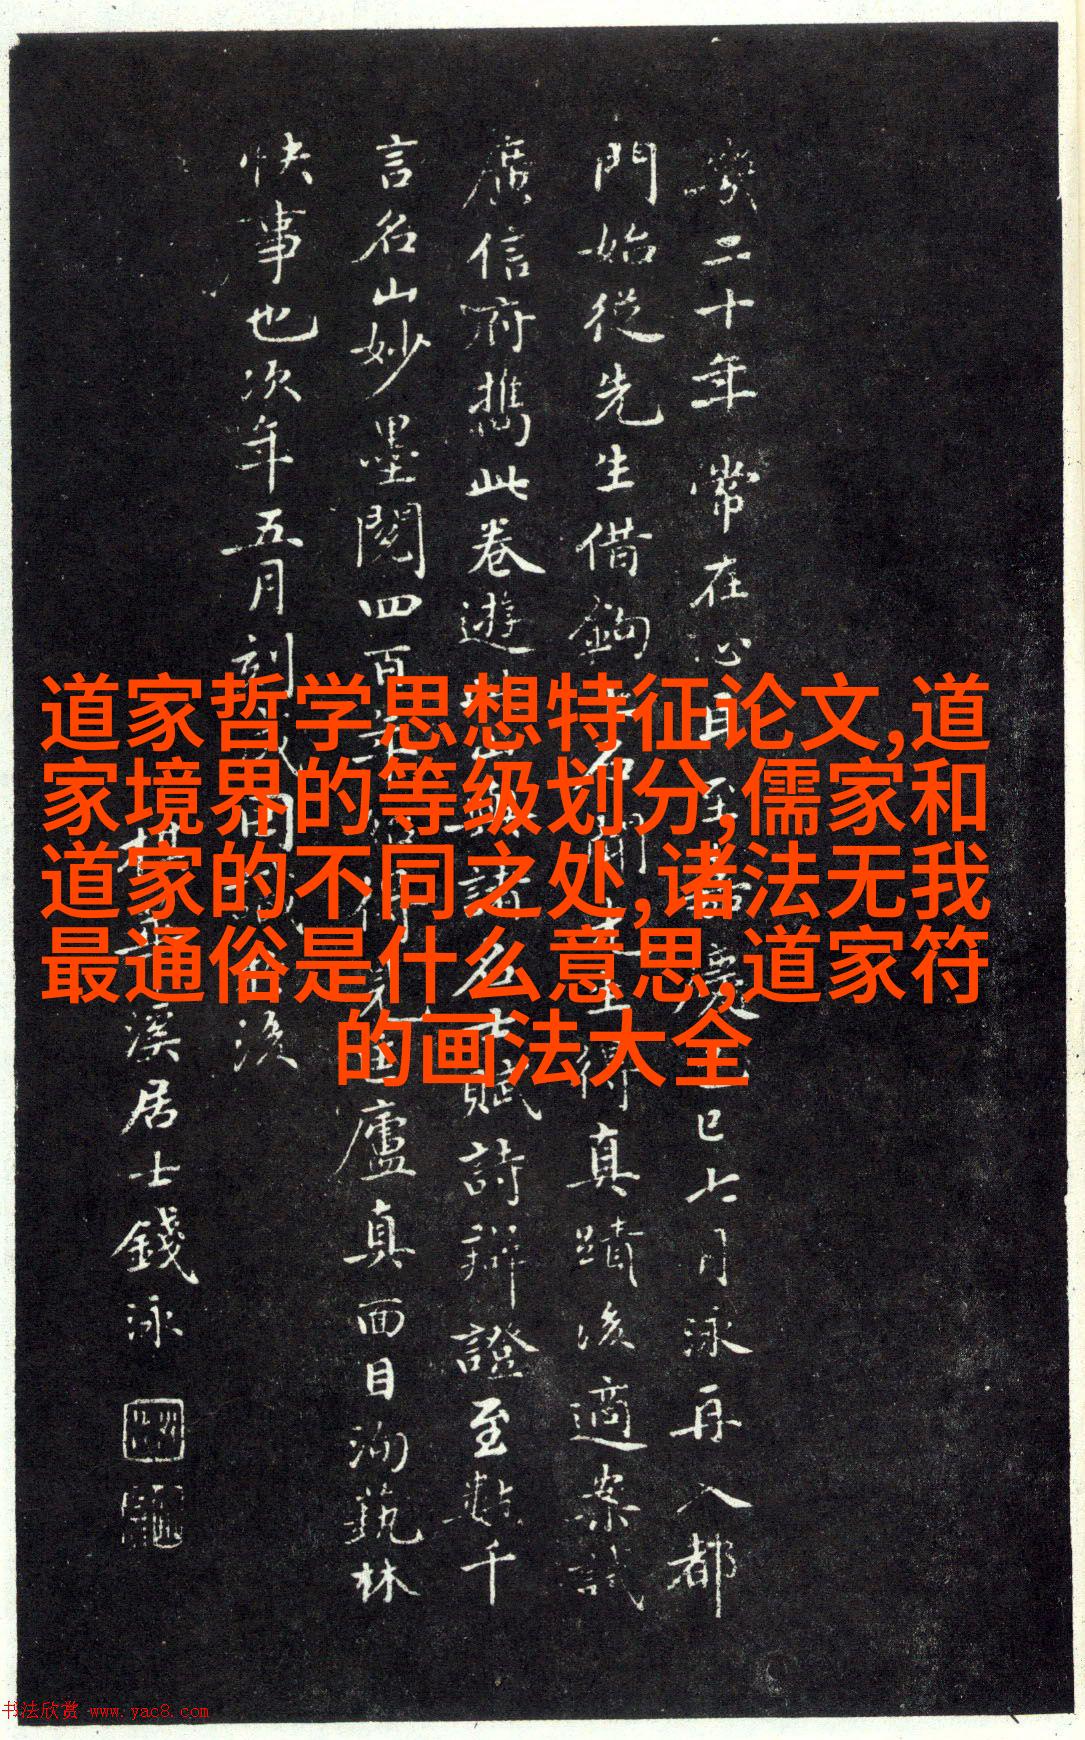 㡬二十年常在心目至嘉慶乙巳七月泳再入都
門始從先生借鉤上石而先生得真蹟後適案試
廣信府携此卷遊
諸名士賦詩辯證至數千
言名山妙墨閱四百
見匡廬真面目洵藝林
快事也次年五月刻成
後
梅華溪居士錢泳
道家哲学思想特征论文,道
家境界的等级划分,儒家和
道家的不同之处,诸法无我
最通俗是什么意思,道家符
的画法大全
书法欣赏 www.yac8.com